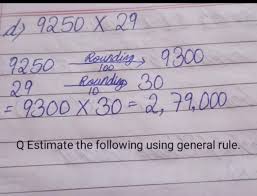 d) 9250 X 29
9250 Rounding 100 → 9300
29 Rounding 10 → 30
= 9300 X 30 = 2,79,000
Q Estimate the following using general rule.